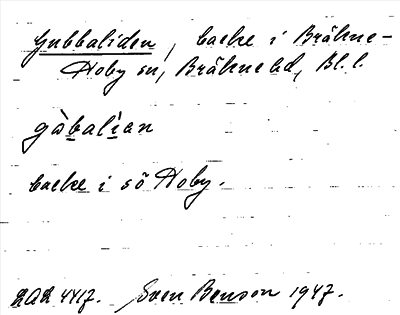 Gubbaliden, backe i Bräkne-
Hoby sn, Bräkne hd, Bl. l.
gàbalìan
backe i sö Hoby.
LAL 4417. Sven Benson 1947.